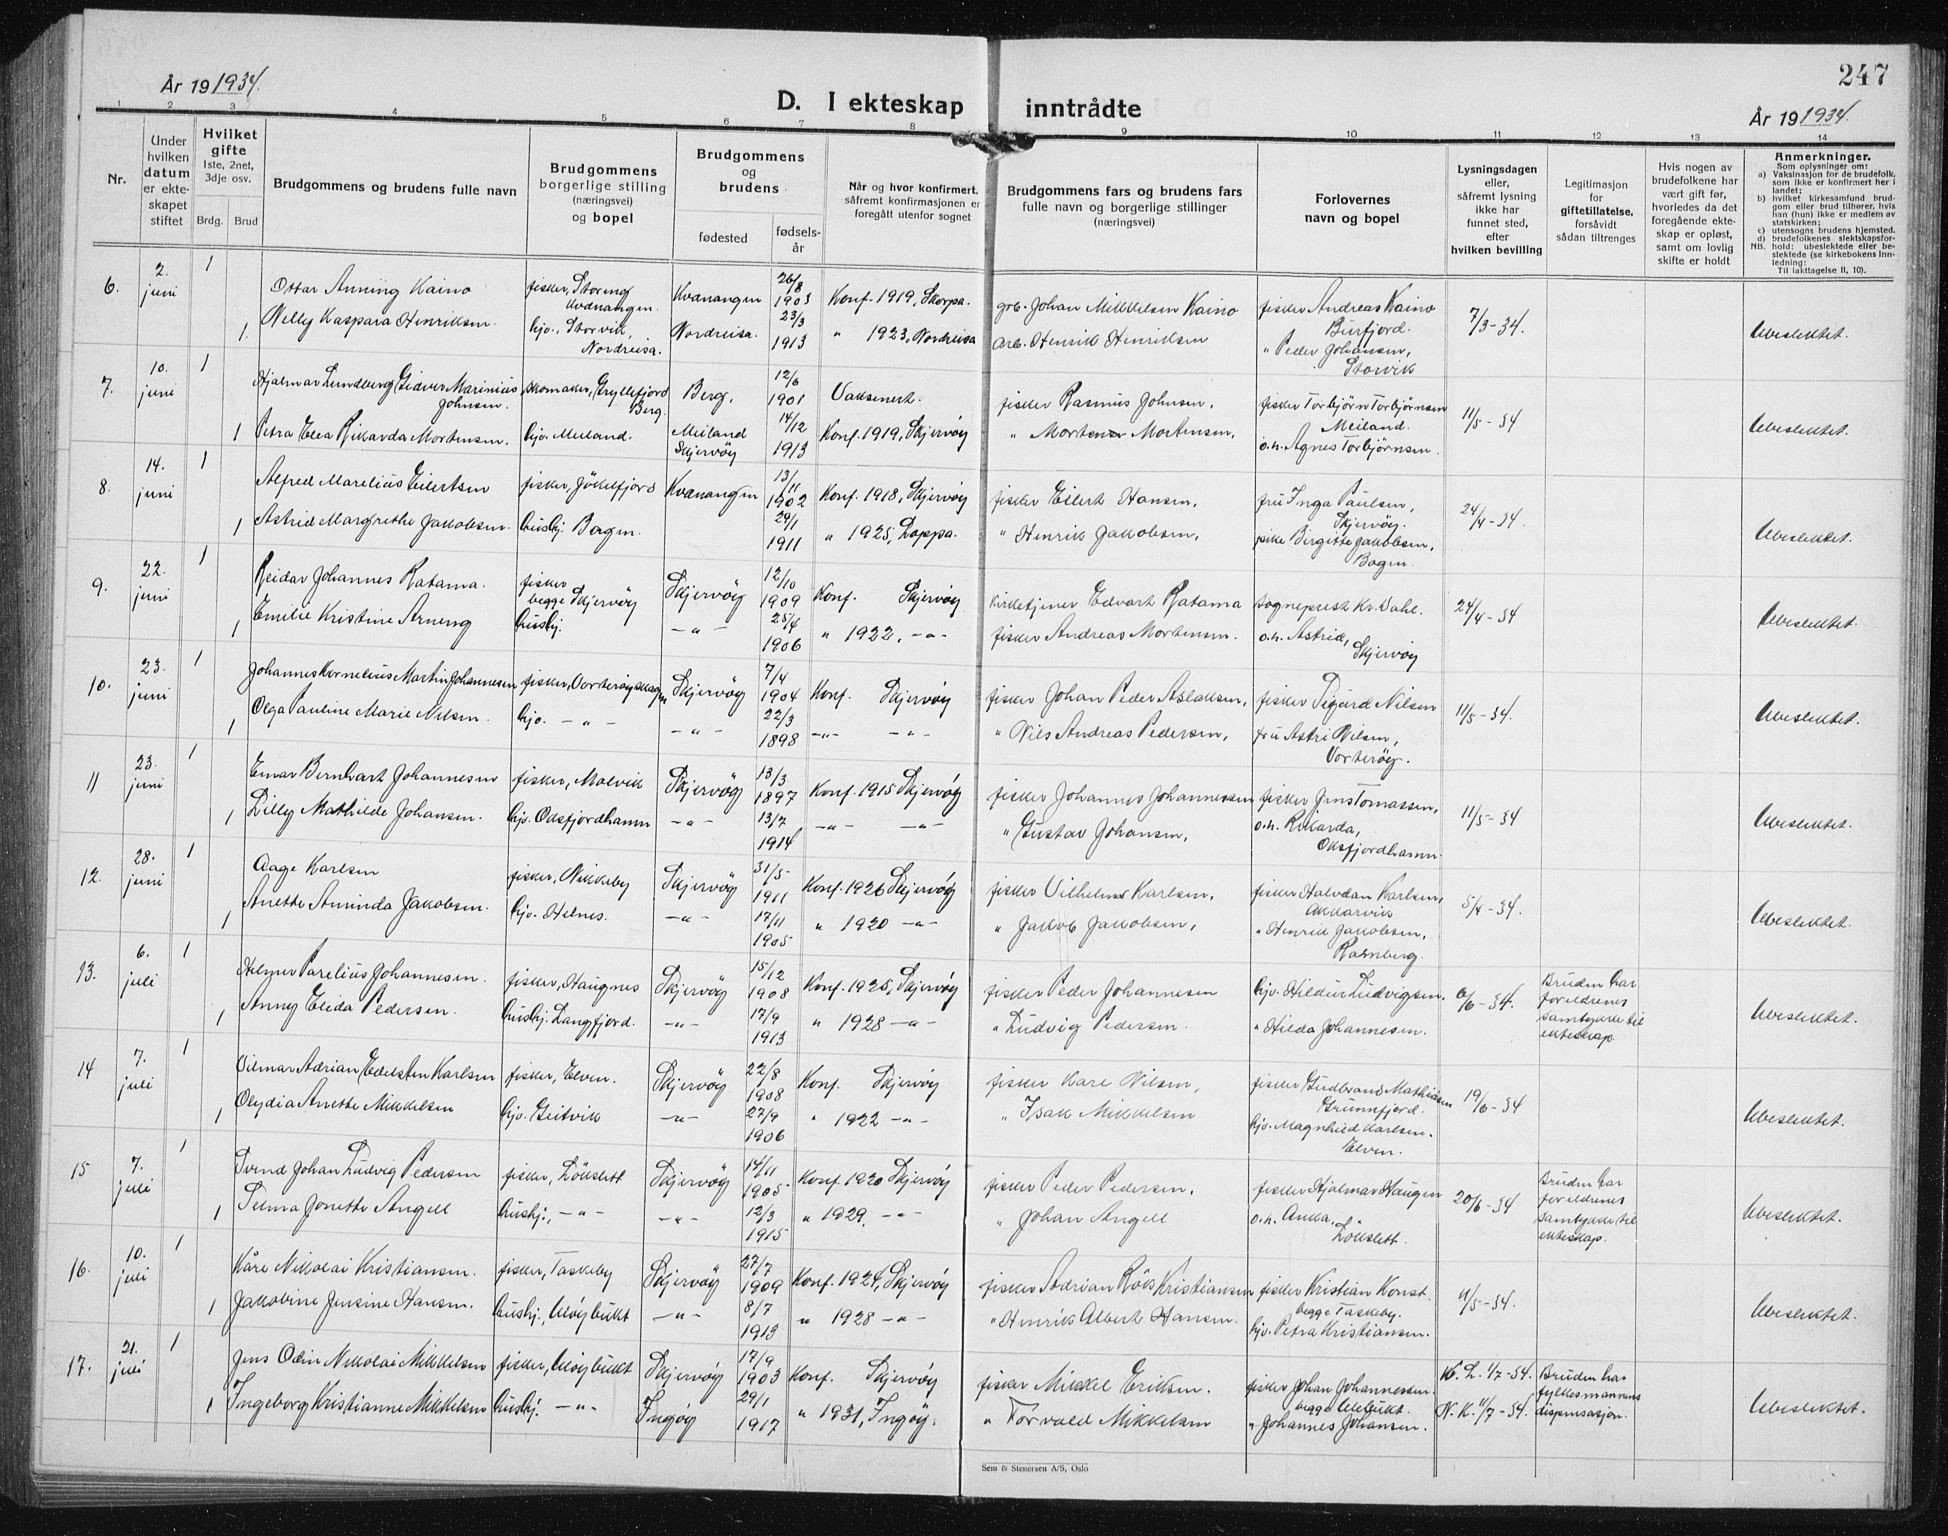 247
År 19 1934.
D. I ekteskap inntrådte
År 19 1934.
1 2 3 4 5 6 7 8 9 10 11 12 13 14
Nr.
Under hvilken datum er ekteskapet stiftet
Hvilket gifte
1ste, 2net, 3dje osv.
Brdg. Brud
Brudgommens og brudens fulle navn
Brudgommens borgerlige stilling (næringsvei) og bopel
Brudgommens og brudens
fødested
fødselsår
Når og hvor konfirmert, såfremt konfirmasjonen er foregått utenfor sognet
Brudgommens fars og brudens fars fulle navn og borgerlige stillinger (næringsvei)
Forlovernes navn og bopel
Lysningsdagen eller, såfremt lysning ikke har funnet sted, efter hvilken bevilling
Legitimasjon for giftetillatelse, forsåvidt sådan tiltrenges
Hvis nogen av brudefolkene har vært gift før, hvorledes da det foregående ekteskap er opløst, samt om lovlig skifte er holdt
Anmerkninger.
Som oplysninger om:
a) Vaksinasjon for de brudefolk, som ikke er konfirmert her i landet;
b) hvilket kirkesamfund brudgom eller brud tilhører, hvis han (hun) ikke er medlem av statskirken;
c) utensogns brudens hjemsted.
d) brudefolkenes slektskapsforhold: ubeslektede eller beslektede (se kirkebokens Innledning:
NB.
Til iakttagelse II, 10).
6. 2. juni 1 Ottar Anning Kaino fisker, Storeng Kvænangen. Kvænangen 26/8 1903 Konf. 1919, Skorpa. grb. Johan Mikkelsen Kaino fisker Andreas Kaino Burfjord. 7/3-34. Ubeslektet.
1 Nelly Kaspara Henriksen. hjv., Storvik, Nordreisa. Nordreisa. 23/3 1913 " 1923, Nordreisa arb. Henrik Henriksen " Peder Johansen, Storvik
7. 10. juni 1 Hjalmar Lundberg Gidver Marinius Johnsen. skomaker, Gryllefjord Berg. Berg, 12/6 1901 Vaksinert. fisker Rasmus Johnsen, fisker Torbjørn Torbjørnsen Meiland. 11/5-34 Ubeslektet.
1 Petra Elea Rikarda Mortensen. hjv. Meiland. Meiland Skjervøy 14/12 1913 Konf. 1919, Skjervøy " Morten Mortensen, o.h. Agnes Torbjørnsen.
8. 14. juni 1 Alfred Marelius Eilertsen fisker, Jökelfjord Kvænangen 13/11 1902 Konf. 1918, Skjervøy fisker Eilert Hansen, fru Inga Paulsen, Skjervøy. 24/4-34. Ubeslektet.
1 Astrid Margrethe Jakobsen. hushj. Bergen. 29/1 1911 " 1925, Loppa. " Henrik Jakobsen, pike Birgitte Jakobsen,
9. 22. juni 1 Reidar Johannes Ratama. fisker begge Skjervøy Skjervøy 12/10 1909 Konf. Skjervøy kirketjener Edvart Ratama sogneprest Kr. Dahl. 24/4-34 Ubeslektet.
1 Emilie Kristine Arneng hushj. -"- 25/4 1906 " 1922, -"- fisker Andreas Mortensen. o.h. Astrid, Skjervøy
10. 23. juni 1 Johannes Kornelius Martin Johannesen fisker, Vorterøyskagen Skjervøy 7/4 1904 Konf. Skjervøy fisker Johan Peder Aslaksen, fisker Sigurd Nilsen 11/5-34. Ubeslektet.
1 Olga Pauline Marie Nilsen. hjv. -"- -"- 22/3 1898 -"- -"- " Nils Andreas Pedersen, fru Astri Nilsen, Vorterøy.
11 23. juni 1 Einar Bernhart Johannesen fisker, Molvik Skjervøy 13/3 1897 Konf. 1915 Skjervøy fisker Johannes Johannessen fisker Jens Tomassen, 11/5-34 Ubeslektet.
1 Lilly Mathilde Johansen. hjv. Oksfjordhamn -"- 13/7 1914 -"- -"- " Gustav Johansen, o.h. Rikarda, Oksfjordhamn.
12. 28. juni 1 Aage Karlsen fisker, Nikkeby Skjervøy 31/5- 1911 Konf. 1926 Skjervøy fisker Vilhelm Karlsen, fisker Halvdan Karlsen, Akkarvik 5/4-34. Ubeslektet.
1 Anette Aminda Jakobsen. hjv. Helnes. -"- 17/11 1905 " 1920 -"- " Jakob Jakobsen, " Henrik Jakobsen,
13. 6. juli 1 Helmer Parelius Johannesen. fisker, Haugnes Skjervøy 15/12 1908 Konf. 1925, Skjervøy fisker Peder Johannesen hjv. Hildur Ludvigsen. 6/6-34. Bruden har foreldrenes samtykke til ekteskap. Ubeslektet.
1 Anny Elida Pedersen. hushj. Langfjord. -"- 17/9 1913 " 1928 -"- " Ludvig Pedersen. " Hilda Johannesen.
14 7. juli 1 Vilmar Adrian Edelsten Karlsen fisker, Elven. Skjervøy 22/8 1908 Konf. Skjervøy fisker Kare Nilsen, fisker Gudbrand Mathiasen Grunnfjord. 19/6-34 Ubeslektet.
1 Olydia Anette Mikkelsen hjv. Geitvik -"- 27/9 1906 " 1922 -"- " Isak Mikkelsen hjv. Magnhild Karlsen. Elven.
15 7. juli 1 Svend Johan Ludvig Pedersen fisker, Lökslett Skjervøy 14/11 1905 Konf. 1920 Skjervøy fisker Peder Pedersen, fisker Hjalmar Haugen 20/6-34 Bruden har foreldrenes samtykke til ekteskap. Ubeslektet.
1 Selma Jonette Angell hushj., -"- -"- 12/3 1915 " 1929. -"- " Johan Angell o.h. Anna, Lökslett.
16. 10. juli 1 Kåre Nikolai Kristiansen. fisker, Taskeby Skjervøy 27/7 1909 Konf. 1924, Skjervøy fisker Adrian Röks Kristiansen fisker Kristian Konst. begge Taskeby. 11/5-34. Ubeslektet.
1 Jakobine Jensine Hansen. hushj., Uløybukt -"- 8/7 1913 " 1928 -"- " Henrik Albert Hansen. hjv. Petra Kristiansen.
17. 21. juli 1 Jens Odin Nikolai Mikkelsen fisker, Uløybukt Skjervøy 17/9 1903 Konf. Skjervøy fisker Mikkel Eriksen. fisker Johan Johannessen. begge Uløbukt. K. L. 1/7-34. Bruden har fylkesmannens dispensasjon. Ubeslektet.
1 Ingeborg Kristianne Mikkelsen hushj. -"- Ingøy 29/1 1917 " 1931, Ingøy. " Torvald Mikkelsen " Johannes Johansen. N. K. 11/7-34.
Sem & Stenersen A/S, Oslo